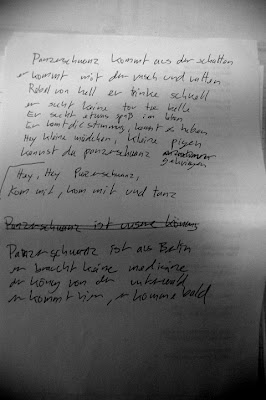 Panzerschwanz kommt aus der schatten
er kommt mit der und ratten
Rebel von hell er trinke schnell
er sucht keine tor the helle
Er sucht etwas spaß im leben
Er die stimmung, konnt & heben
Hey kleine mädchen, kleine
kennst du panzerschwanz
Hey, Hey Panzerschwanz,
Kom mit, kom mit und tanz
Panzerschwanz ist unsere
Panzerschwanz ist aus Berlin
er braucht keine medizine
er könig von der unterwald
er kommt hier, er komme bald